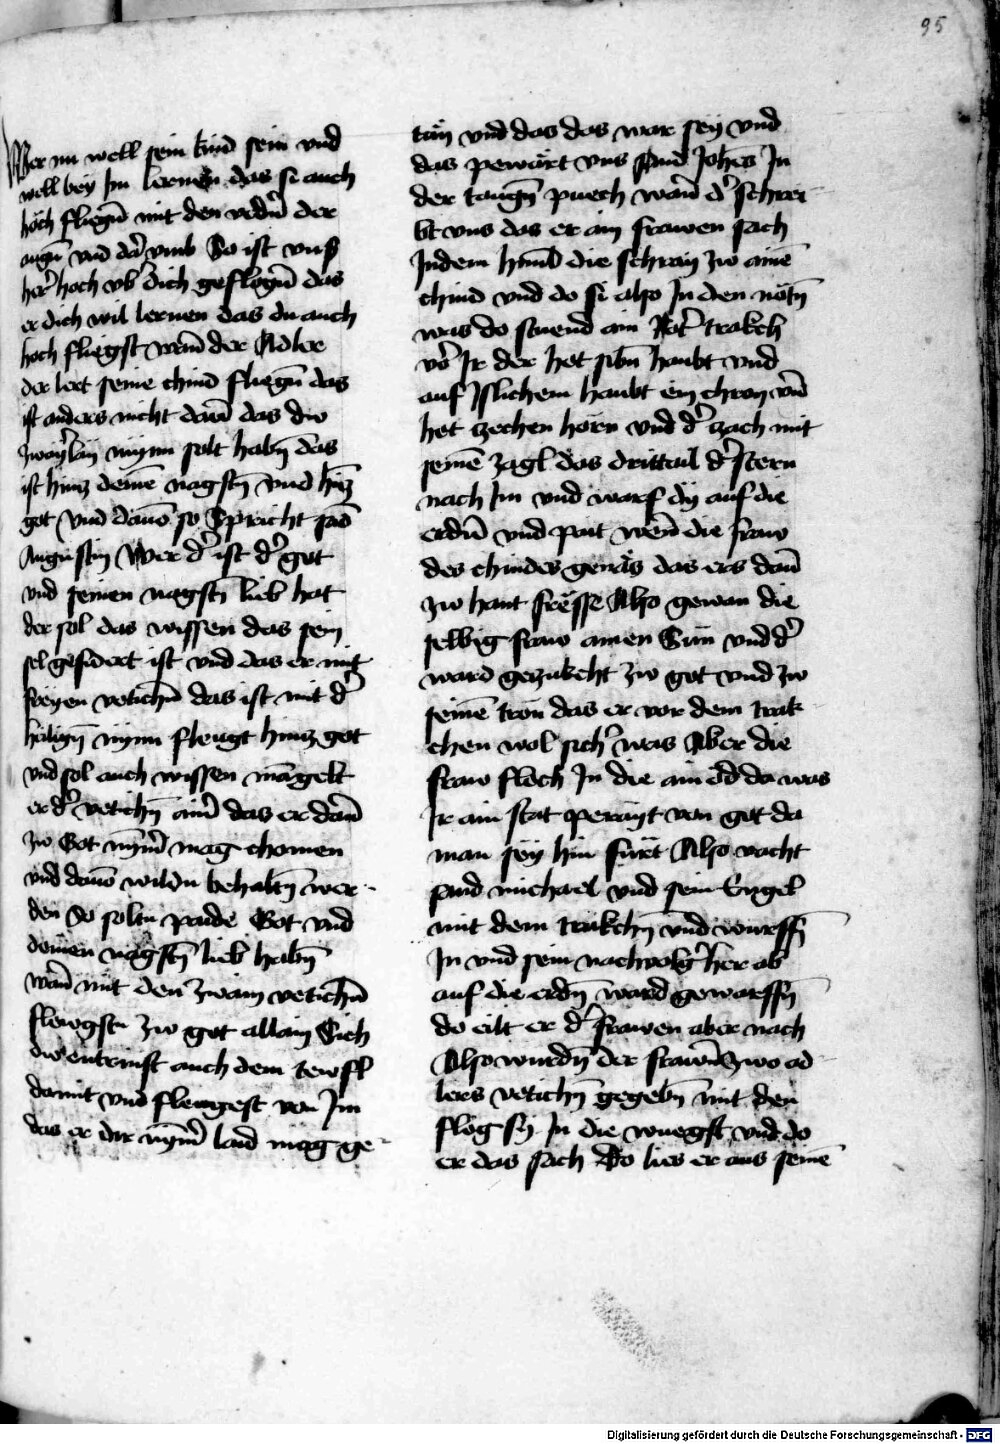 95
Wer nu well sein kind sein vnd
well bey Im lernen das si auch
hoch fliegn̄ mit den vedn̄ der
augn̄ vnd dar vmb So ist vnß
her hoch vb̓ dich geflogn̄ das
er dich wil lernen das du auch
hoch fliegst wan̄ der Adler
der lert seine chind fliegn̄ das
ist anders nicht dan̄ das du
zwayr̓lay mynn solt habn̄ das
ist hincz deinē nagstn̄ vnd hincz
got vnd dauō so Spricht sād
Augustin Wer d̓ ist d̓ got
vnd seinen nagstn̄ lieb hat
der sol das wissen das sein
sel gefidert ist vnd das er mit
freyen vetichn̄ das ist mit d̓
hailign̄ mynn fleugt hincz got
vnd sol auch wissen mangelt
er d̓ vetichn̄ ainr̓ das er dan̄
zw Got nymr̓ mag chomen
vnd dauō wildu behaltn̄ wer
den So soltu paide Got vnd
deinen nagstn̄ lieb habn̄
wan̄ mit den zwain vetichn̄
flewgstu zw got allain Sich
du entrinst auch dem tewfl
damit vnd flewgest von Im
das er dir nymr̓ laid mag ge
tün vnd das das war sey vnd
das pewärt vns sand Johes In
der taugn̄ puech wan̄ d̓ schrei
bt vns das er ain frawen sach
Indem himl die schray zw ainē
chind vnd do si also In den nötn̄
was do stuend ain Rotr̓ trakch
vor Ir der het sibn̄ haubt vnd
auf Islichem haubt ein chron vnd
het zechen hörn vnd d̓ zach mit
seinē zagl das drittail d̓ stern
nach Im vnd warf dy auf die
erdn̄ vnd pait wen̄ die fraw
des chindes genäs das ers dan̄
zw hant frësse Also gewan die
selbig fraw ainen Sun vnd d̓
ward gezukcht zw got vnd zw
seinē tron das er vor dem trak
chen wol sichr̓ was Aber die
fraw flöch In die ainöd da was
Ir ain stat perayt von got da
man sey hin fürt Also vacht
sand michael vnd sein Engel
mit dem trakchn̄ vnd wurffn̄
In vnd sein nachvolgr̓ her ab
auf die erdn̄ ward geworffn̄
do eilt er d̓ frawen aber nach
Also wurdn̄ der frawn̄ zwo ad
lers vetichn̄ gegebn̄ mit den
flög sy In die wuegst vnd do
er das sach Do lies er aus seinē
Digitalisierung gefördert durch die Deutsche Forschungsgemeinschaft - DFG